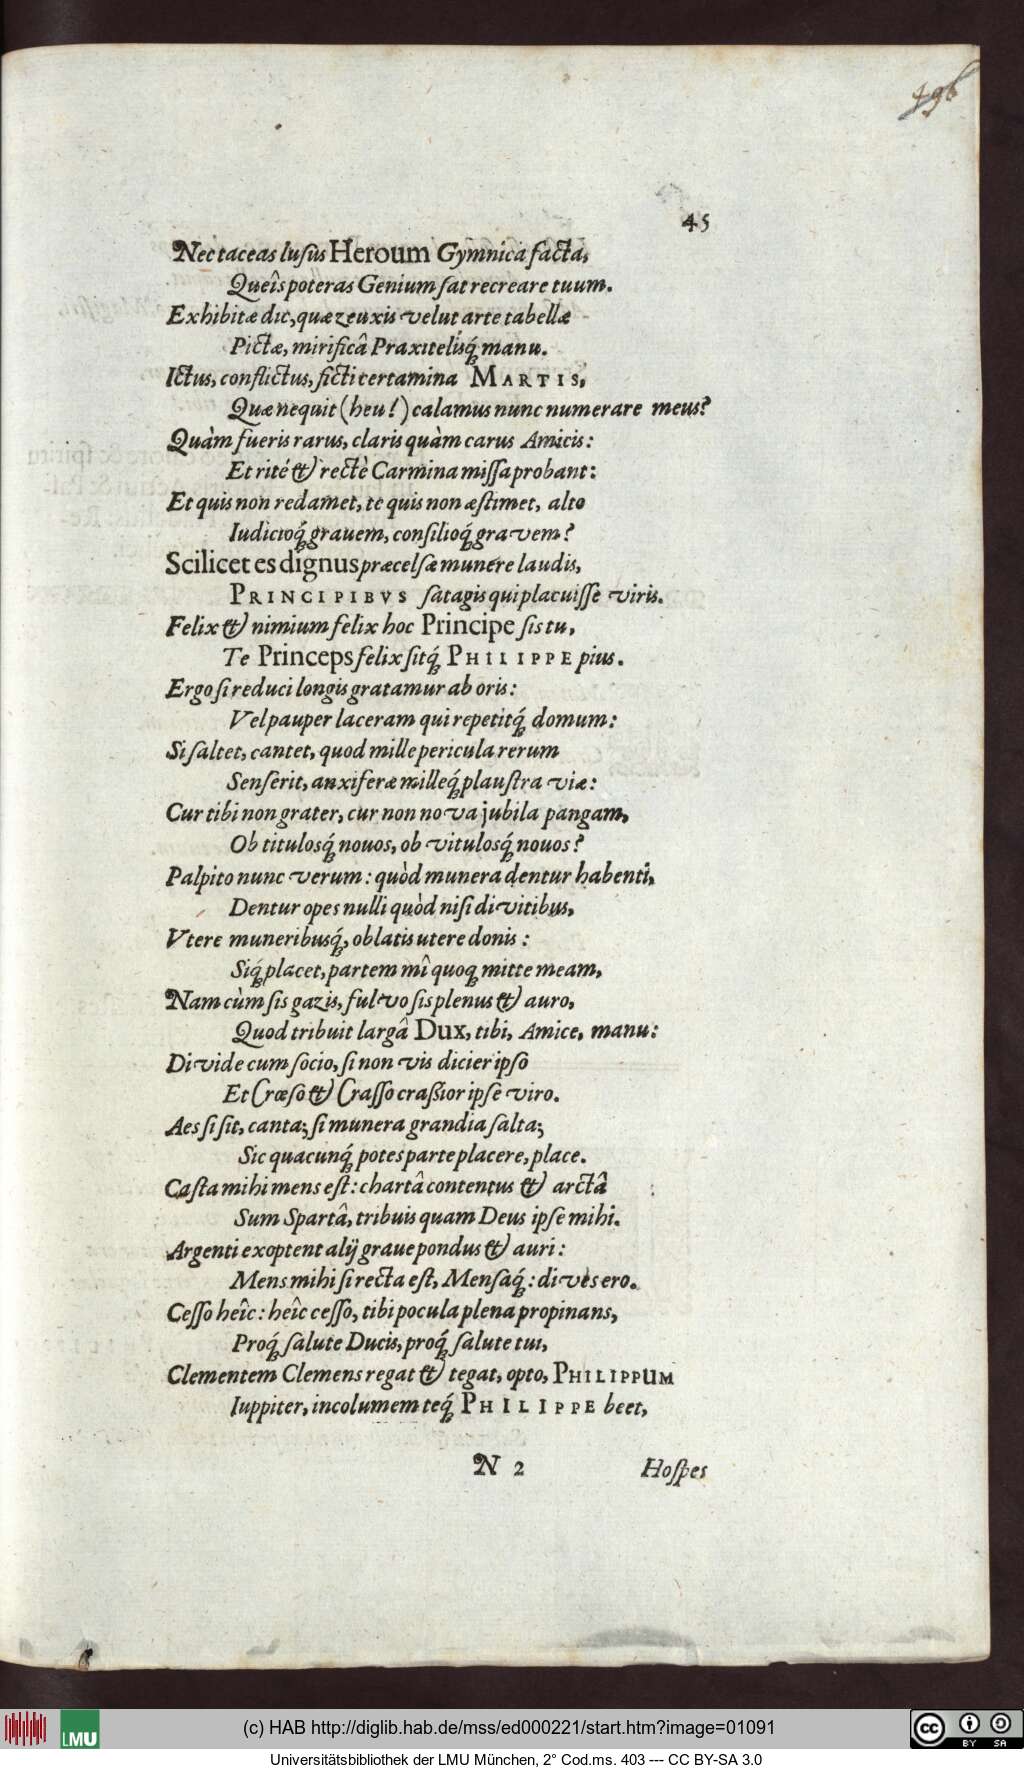 496
45
Nec taceas lusûs Heroum Gymnica facta,
Queîs poteras Genium sat recreare tuum.
Exhibitæ dic, quæ zeuxis velut arte tabellæ
Pictæ, mirificâ Praxitelisq́; manu.
Ictus, conflictus, ficti certamina MARTIS,
Quæ nequit (heu!) calamus nunc numerare meus?
Quàm fueris rarus, claris quàm carus Amicis:
Et rité & rectè Carmina missa probant:
Et quis non redamet, te quis non æstimet, alto
Iudicioq́; grauem, consilioq́; gravem?
Scilicet es dignus præcelsæ munere laudis,
PRINCIPIBVS satagis qui placuisse viris.
Felix & nimium felix hoc Principe sis tu,
Te Princeps felix sitq́; PHILIPPE pius.
Ergo si reduci longis gratamur ab oris:
Vel pauper laceram qui repetitq́; domum:
Si saltet, cantet, quod mille pericula rerum
Senserit, anxiferæ milleq́; plaustra viæ:
Cur tibi non grater, cur non nova jubila pangam,
Ob titulosq́; nouos, ob vitulosq́; nouos?
Palpito nunc verum: quòd munera dentur habenti,
Dentur opes nulli quòd nisi divitibus,
Vtere muneribusq́;, oblatis utere donis:
Siq́; placet, partem mî quoq; mitte meam,
Nam cùm sis gazis, fulvo sis plenus & auro,
Quod tribuit largâ Dux, tibi, Amice, manu:
Divide cum socio, si non vis dicier ipso
Et Crœso & Crasso crassior ipse viro.
Aes si sit, canta; si munera grandia salta;
Sic quacunq́; potes parte placere, place.
Casta mihi mens est: chartâ contentus & arctâ
Sum Spartâ, tribuis quam Deus ipse mihi.
Argenti exoptent alij graue pondus & auri:
Mens mihi si recta est, Mensaq́;: dives ero.
Cesso heîc: heîc cesso, tibi pocula plena propinans,
Proq́; salute Ducis, proq́; salute tui,
Clementem Clemens regat & tegat, opto, PHILIPPUM
Iuppiter, incolumem teq́; PHILIPPE beet,
N 2 Hospes
(c) HAB http://diglib.hab.de/mss/ed000221/start.htm?image=01091
LMU
BY SA
Universitätsbibliothek der LMU München, 2° Cod.ms. 403 --- CC BY-SA 3.0